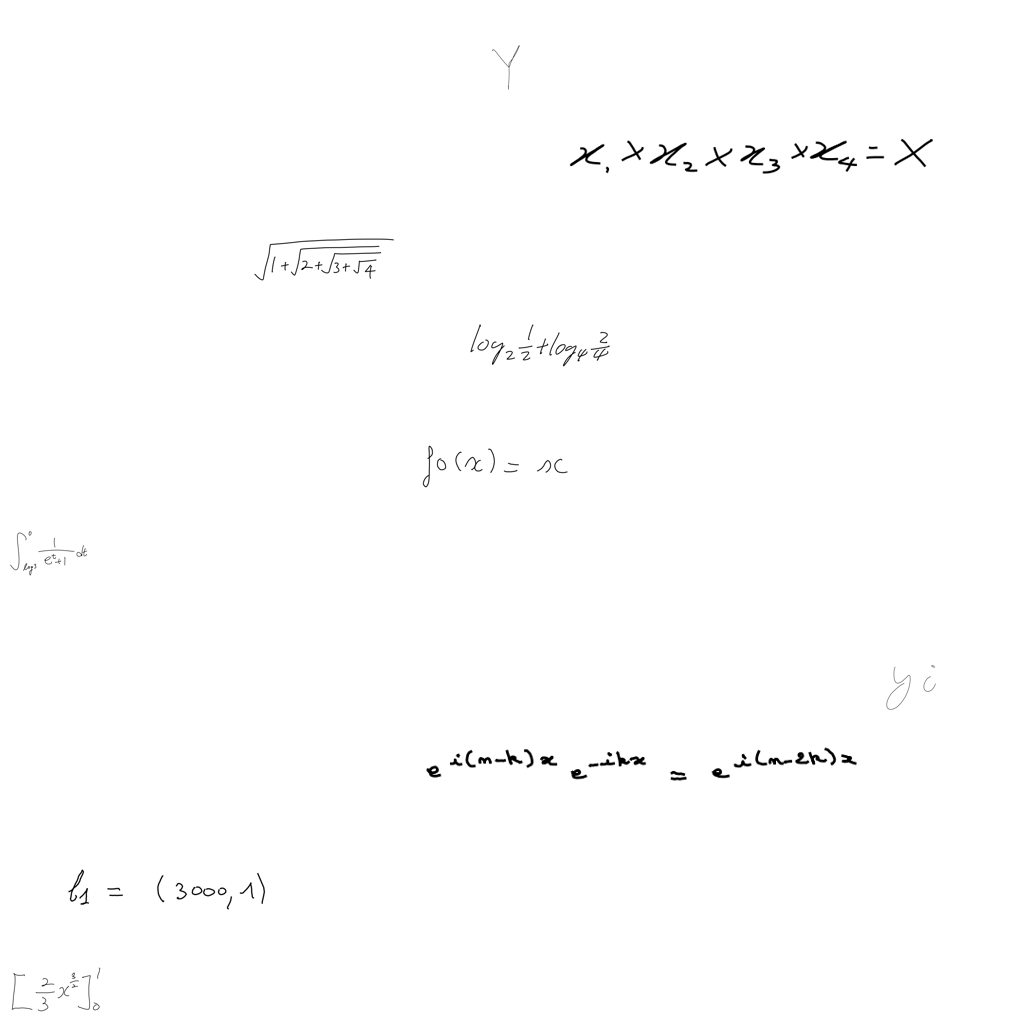 Y
x₁ × x₂ × x₃ × x₄ = X
√(1+√(2+√(3+√4)))
log₂ 1/2 + log₄ 2/4
f₀(x) = x
∫_{log3}^{0} 1/(e^t+1) dt
yi
e^{i(n-k)x} e^{-ikx} = e^{i(n-2k)x}
b₁ = (3000,1)
[2/3 x^{3/2}]_0^1